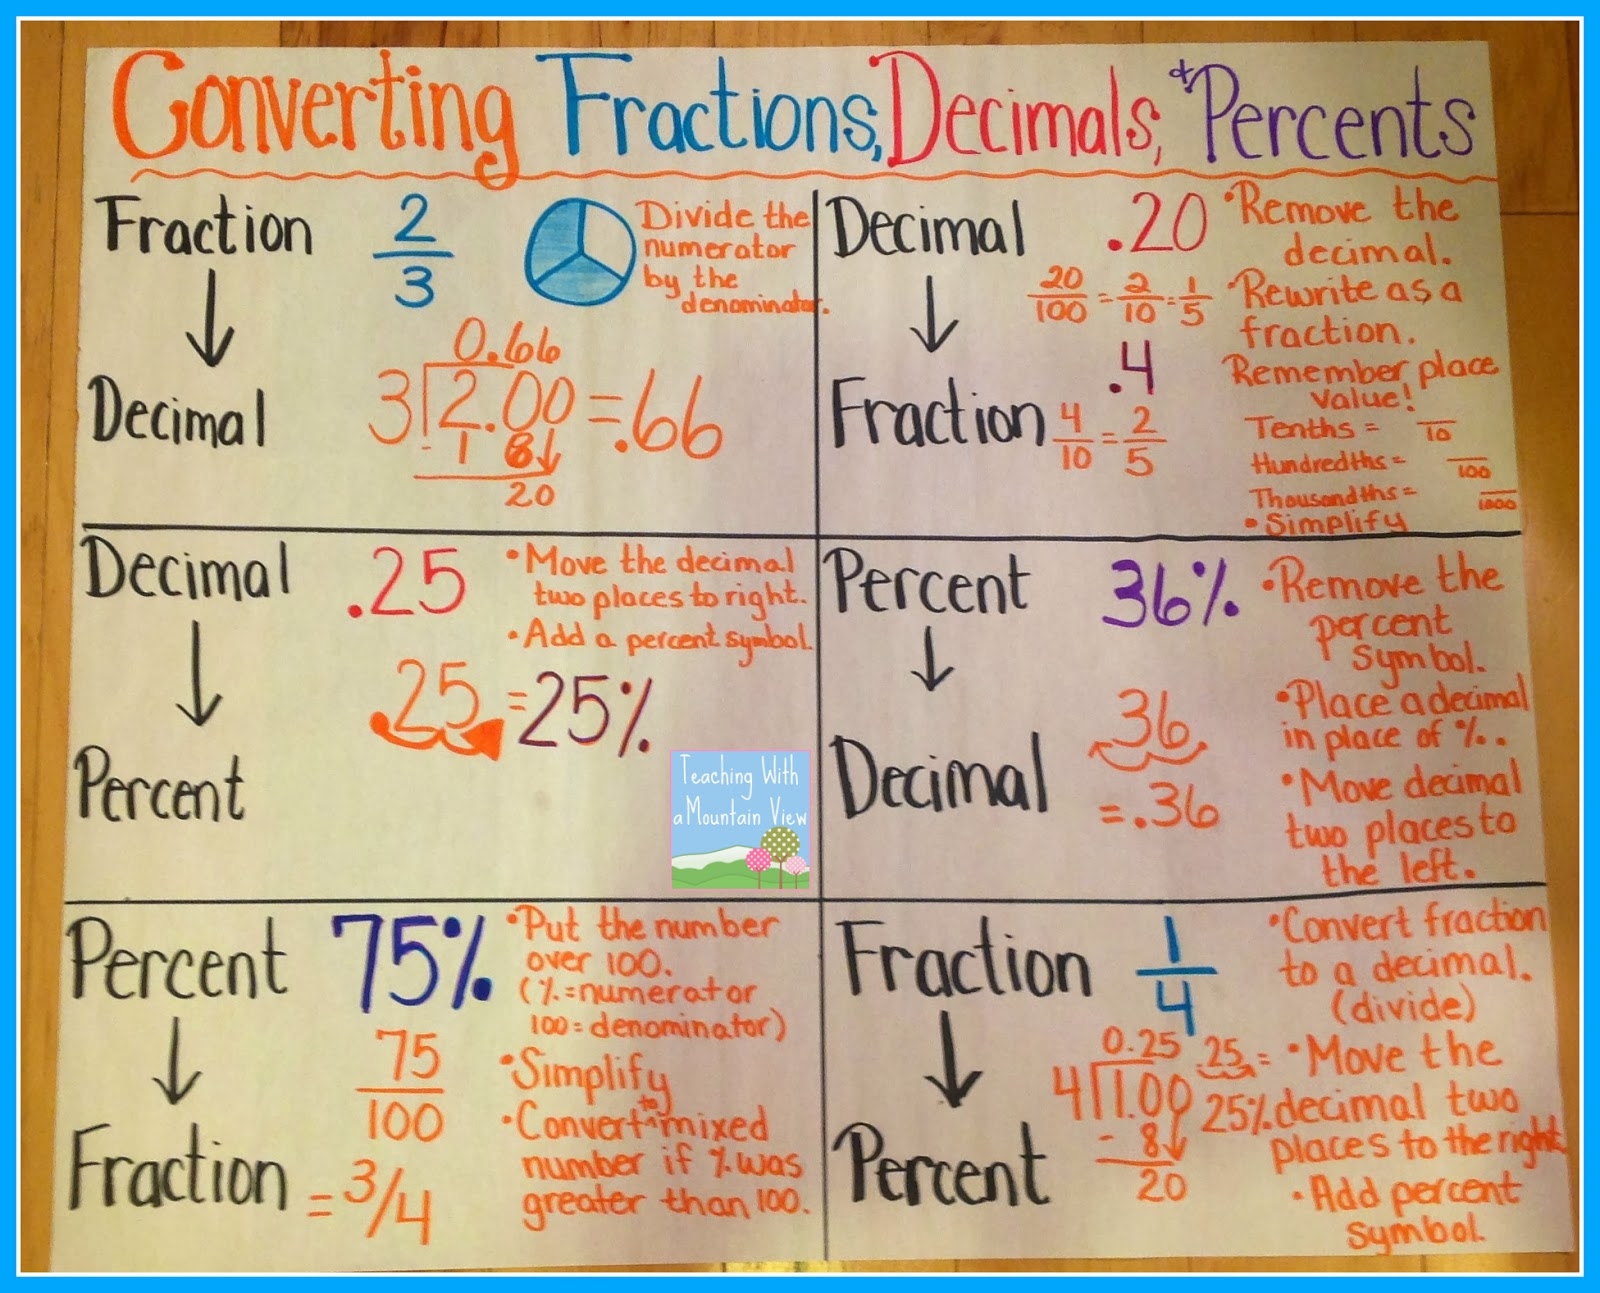 Converting Fractions, Decimals, + Percents
Fraction
Decimal
2
3
Divide the
numerator
by the
denominator.
0.66
3 2.00 = .66
- 1 8
20
Decimal
Fraction
.20
20/100 = 2/10 = 1/5
.4
4/10 = 2/5
• Remove the
decimal.
• Rewrite as a
fraction.
Remember place
value!
Tenths = /10
Hundredths = /100
Thousandths = /1000
• Simplify
Decimal
Percent
.25
• Move the decimal
two places to right.
• Add a percent symbol.
.25 = 25%
Teaching With
a Mountain View
Percent
Decimal
36%
36
= .36
• Remove the
percent
symbol.
• Place a decimal
in place of %..
• Move decimal
two places to
the left.
Percent
Fraction
75%
75
100
= 3/4
• Put the number
over 100.
(% = numerator
100 = denominator)
• Simplify
• Convert to mixed
number if % was
greater than 100.
Fraction
Percent
1
4
0.25
4 1.00
- 8
20
.25 =
25%
• Convert fraction
to a decimal.
(divide)
• Move the
decimal two
places to the right
• Add percent
symbol.